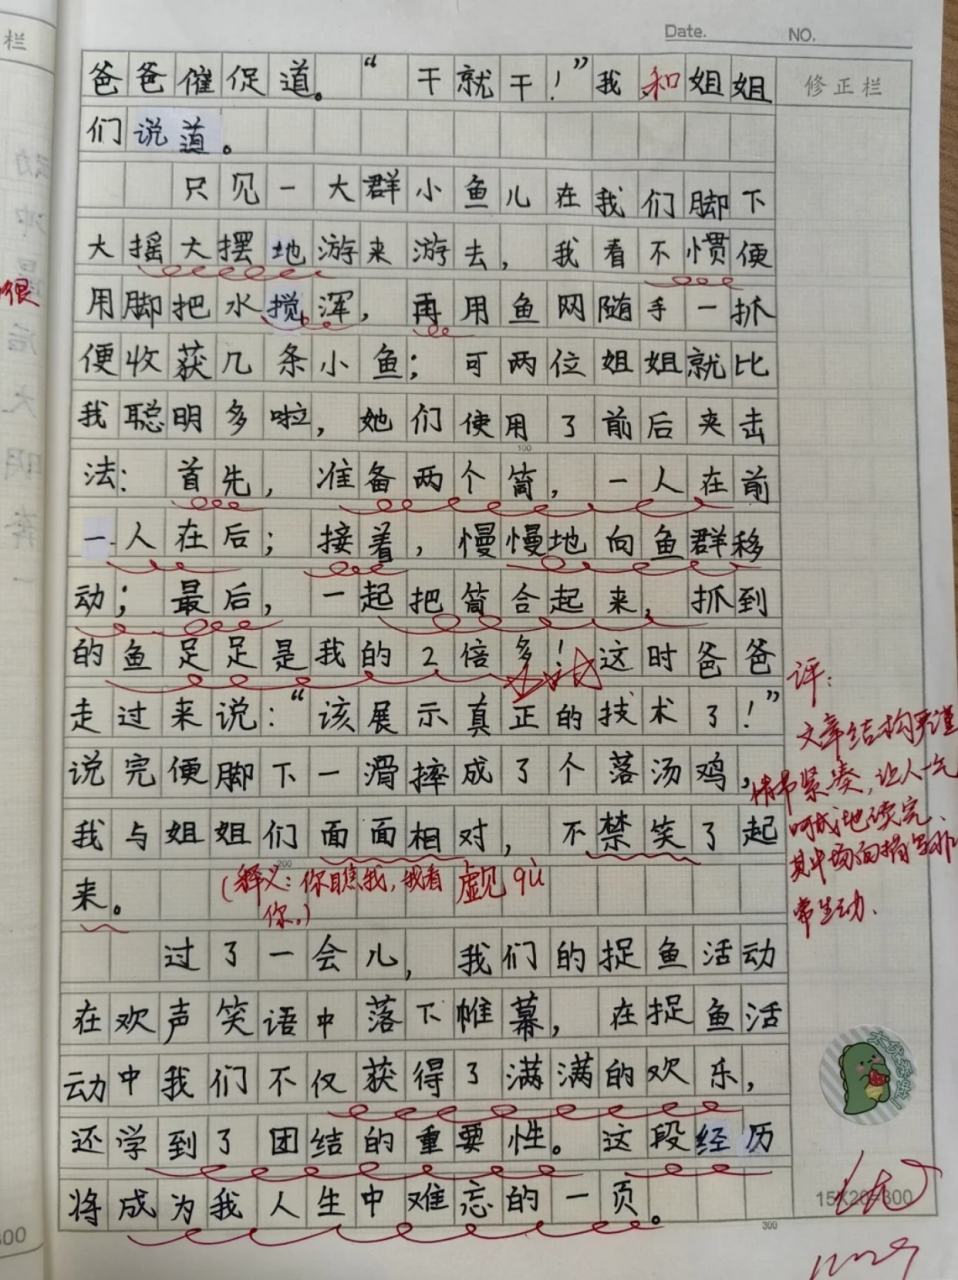 Date.
NO.
修正栏
爸爸催促道。“干就干！”我和姐姐
们说道。
只见一大群小鱼儿在我们脚下
大摇大摆地游来游去，我看不惯便
用脚把水搅浑，再用鱼网随手一抓
便收获几条小鱼；可两位姐姐就比
我聪明多啦，她们使用了前后夹击
法：首先，准备两个筒，一人在前
一人在后；接着，慢慢地向鱼群移
动；最后，一起把筒合起来，抓到
的鱼足足是我的2倍多！这时爸爸
走过来说：“该展示真正的技术了！”
说完便脚下一滑摔成了个落汤鸡，
我与姐姐们面面相对，不禁笑了起
来。
(释义：你瞧我，我看
你。)
过了一会儿，我们的捉鱼活动
在欢声笑语中落下帷幕，在捉鱼活
动中我们不仅获得了满满的欢乐，
还学到了团结的重要性。这段经历
将成为我人生中难忘的一页。
评：
文章结构严谨
情节紧凑，让人一气
呵成地读完、
其中场面描写非
常生动.
优
15X20=300
100
200
300
栏
很